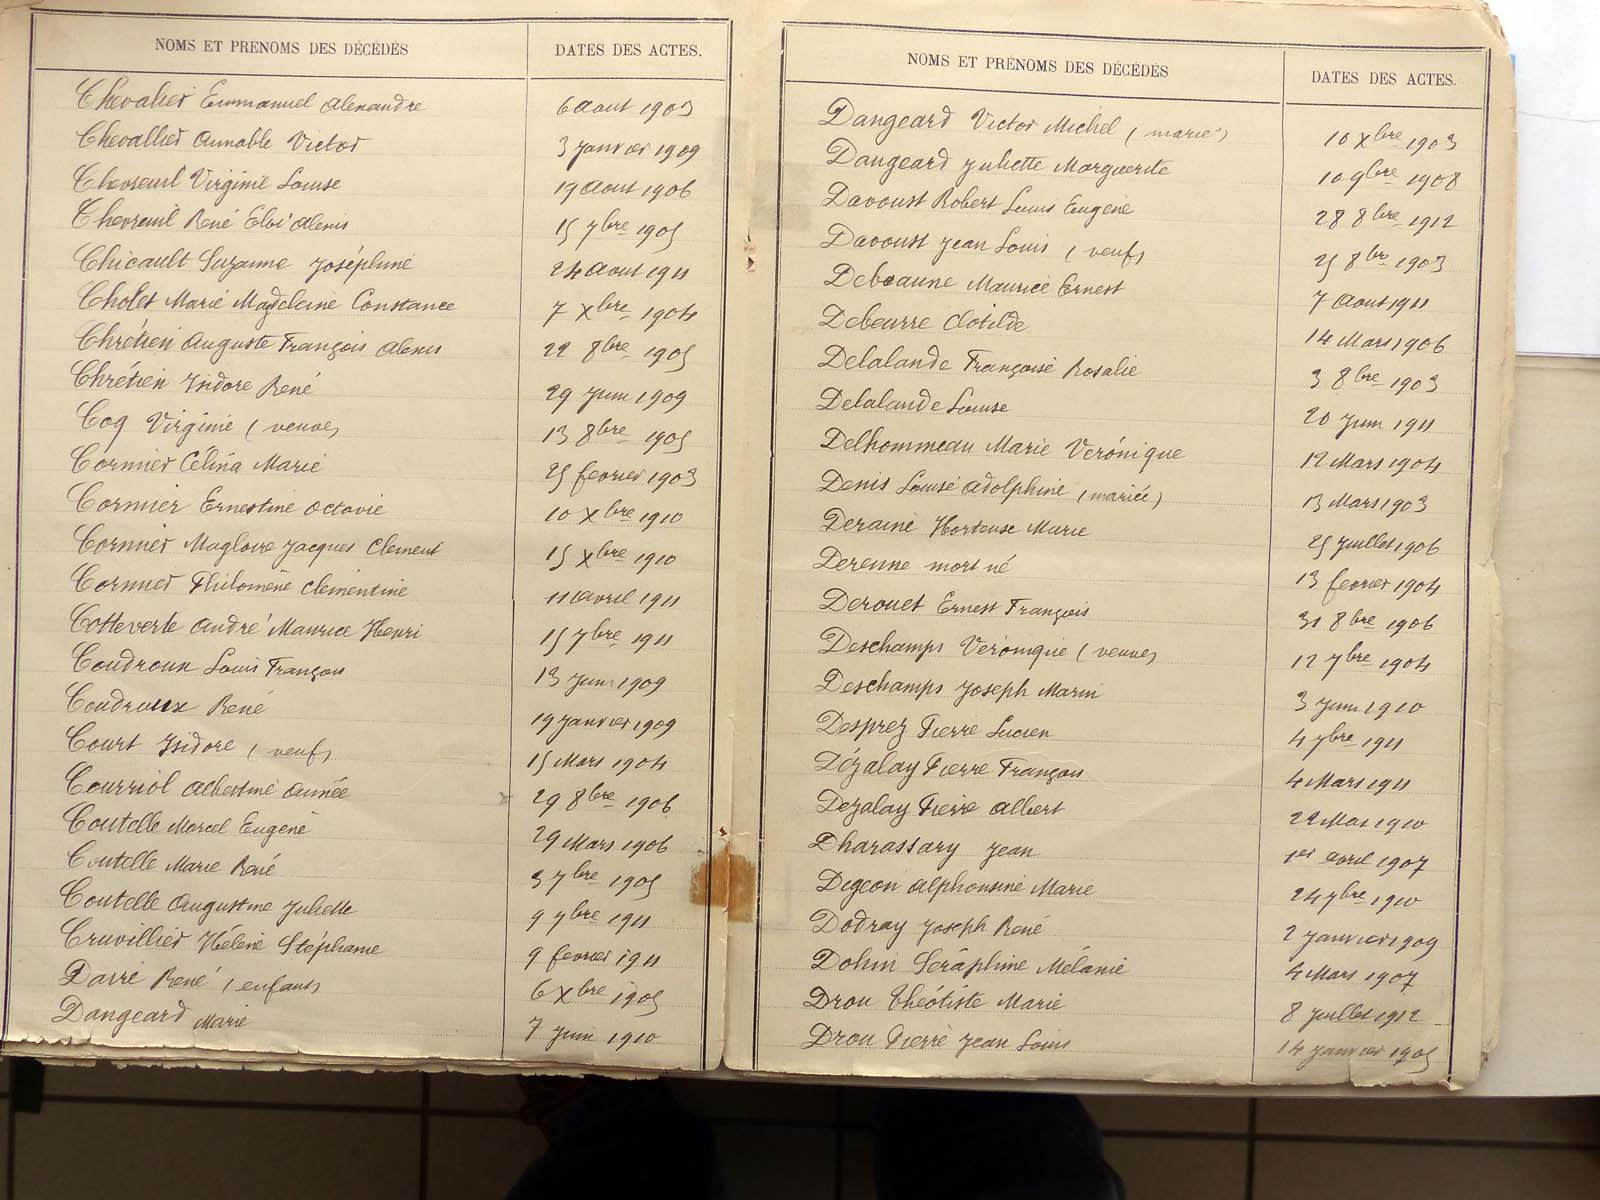 NOMS ET PRENOMS DES DÉCÉDÉS DATES DES ACTES.
Chevalier Emmanuel Alexandre 6 Aout 1903
Chevallier Aimable Victor 3 Janvier 1909
Chevreuil Virginie Louise 19 Aout 1906
Chevreuil René Eloi Alexis 15 7bre 1905
Chicault Suzanne Joséphine 24 Aout 1911
Cholet Marie Magdeleine Constance 7 Xbre 1904
Chrétien Auguste François Alexis 22 8bre 1905
Chrétien Isidore René 29 Juin 1909
Coq Virginie (veuve) 13 8bre 1905
Cormier Célina Marie 25 fevrier 1903
Cormier Ernestine Octavie 10 Xbre 1910
Cormier Magloire Jacques Clement 15 Xbre 1910
Cormier Philomène Clementine 11 Avril 1911
Cotteverte André Maurice Henri 15 7bre 1911
Coudroux Louis François 13 Juin 1909
Coudroux René 19 Janvier 1909
Court Isidore (veuf) 15 Mars 1904
Courriol Albertine Aimée 29 8bre 1906
Coutelle Marcel Eugené 29 Mars 1906
Coutelle Marie René 3 7bre 1905
Coutelle Augustine Juliette 9 7bre 1911
Cruvillier Hélène Stéphanie 9 fevrier 1911
Darré René (enfant) 6 Xbre 1905
Dangeard Marie 7 Juin 1910
NOMS ET PRÉNOMS DES DÉCÉDÉS DATES DES ACTES.
Dangeard Victor Michel (marié) 10 Xbre 1903
Dangeard Juliette Marguerite 10 9bre 1908
Davoust Robert Louis Eugène 28 8bre 1912
Davoust Jean Louis (veuf) 25 8bre 1903
Debeaune Maurice Ernest 7 Aout 1911
Debeurre Clotilde 14 Mars 1906
Delalande Françoise Rosalie 3 8bre 1903
Delalande Louise 20 Juin 1911
Delhommeau Marie Véronique 12 Mars 1904
Denis Louise Adolphine (mariée) 13 Mars 1903
Deraine Hortense Marie 25 Juillet 1906
Derenne mort né 13 fevrier 1904
Derouet Ernest François 31 8bre 1906
Deschamps Véronique (veuve) 12 7bre 1904
Deschamps Joseph Marin 3 Juin 1910
Desprez Pierre Lucien 4 7bre 1911
Dézalay Pierre François 4 Mars 1911
Dezalay Pierre Albert 22 Mai 1910
Dharassary Jean 1er Avril 1907
Digeon Alphonsine Marie 24 7bre 1910
Dodray Joseph René 2 Janvier 1909
Dohin Séraphine Mélanie 4 Mars 1907
Drou Théotiste Marie 8 Juillet 1912
Drou Pierre Jean Louis 14 Janvier 1905